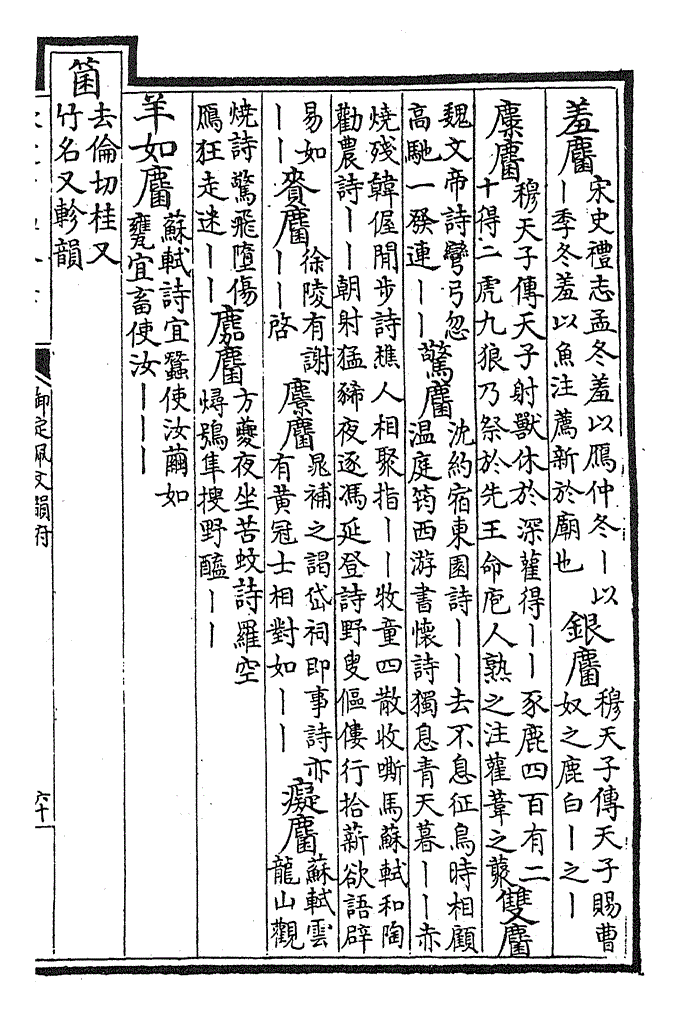 羞麕
宋史禮志孟冬羞以鴈仲冬丨以
丨季冬羞以魚注薦新於廟也
銀麕
穆天子傳天子賜曹
奴之鹿白丨之丨
麋麕
穆天子傳天子射獸休於深雚得丨丨豕鹿四百有二
十得二虎九狼乃祭於先王命庖人熟之注雚葦之藂
雙麕
魏文帝詩彎弓忽
高馳一發連丨丨
驚麕
沈約宿東園詩丨丨去不息征鳥時相顧
温庭筠西游書懷詩獨息青天暮丨丨赤
燒殘韓偓閒步詩樵人相聚指丨丨牧童四散收嘶馬蘇軾和陶
勸農詩丨丨朝射猛豨夜逐馮延登詩野叟傴僂行拾薪欲語辟
易如
丨丨
賚麕
徐陵有謝
丨丨啓
麖麕
晁補之謁岱祠即事詩亦
有黄冠士相對如丨丨
癡麕
蘇軾雲
龍山觀
燒詩驚飛墮傷
鴈狂走迷丨丨
麚麕
方夔夜坐苦蚊詩羅空
燖鴞隼搜野醢丨丨
羊如麕
蘇軾詩宜蠶使汝繭如
甕宜畜使汝丨丨丨
箘
去倫切桂又
竹名又軫韻
御定佩文韻府